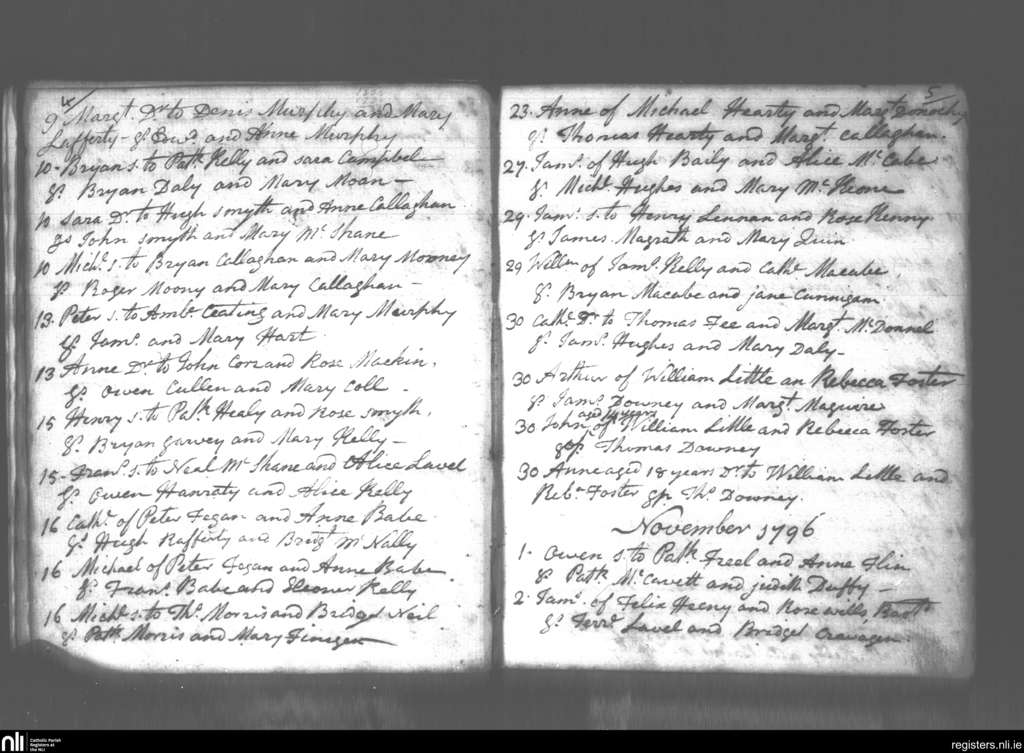 4
9 Margt. Dr. to Denis Murphy and Mary
Lafferty - gs. Edwd. and Anne Murphy
10 - Bryan s. to Patk. Kelly and Sara Campbel
gs. Bryan Daly and Mary Moan -
10 Sara Dr. to Hugh Smyth and Anne Callaghan
gs John Smyth and Mary Mc Shane
10 Michl. s. to Bryan Callaghan and Mary Mooney
gs. Roger Moony and Mary Callaghan -
13. Peter s. to Ambe. Ceating and Mary Murphy
gs. Jams. and Mary Hart
13 Anne Dr. to John and Rose Mackin.
gs. Owen Cullen and Mary Coll -
15 Henry s. to Patk. Healy and Rose Smyth.
gs. Bryan Garvey and Mary Kelly -
15 - Frans. s. to Neal Mc Shane and Alice Lavel
gs. Owen Hanraty and Alice Kelly
16 Cathe. of Peter Fegan and Anne Babe
gs. Hugh Rafferty and Bridgt Mc Nally
16 Michael of Peter Fegan and Anne Babe
gs. Frans. Babe and Eleoner Kelly
16 Michl. s. to Ths. Morris and Bridget Neil
gs. Patk. Morris and Mary Finegan
5
23. Anne of Michael Hearty and Margt Donochy
gs. Thomas Hearty and Margt. Callaghan.
27. Jams. of Hugh Baily and Alice Mc Cabe
gs. Michl. Hughes and Mary Mc Keone
29. Jams. s. to Henry Lennan and Rose Kenny
gs. James Magrath and Mary Quin
29 Willm of Jams. Kelly and Cathe Macabe,
gs. Bryan Macabe and jane Cunnigam
30 Cathe. Dr. to Thomas Fee and Margt. Mc Donnel
gs. Jams. Hughes and Mary Daly -
30 Arthur of William Little an Rebecca Foster
gs. Jams. Downey and Margt. Maguire
aged years
30 John of William Little and Rebecca Foster
gs. Thomas Downey
30 Anne aged 18 years Dr. to William Little and
Reba. Foster gs. Ths. Downey.
November 1796
1. Owen s. to Patk. Freel and Anne Flin
gs. Patk. Mc Cavett and judith Duffy -
2. Jams. of Felix Heny and Rose wills,
gs. Lavel and Bridget
nli
Catholic Parish
Registers at
the NLI
registers.nli.ie